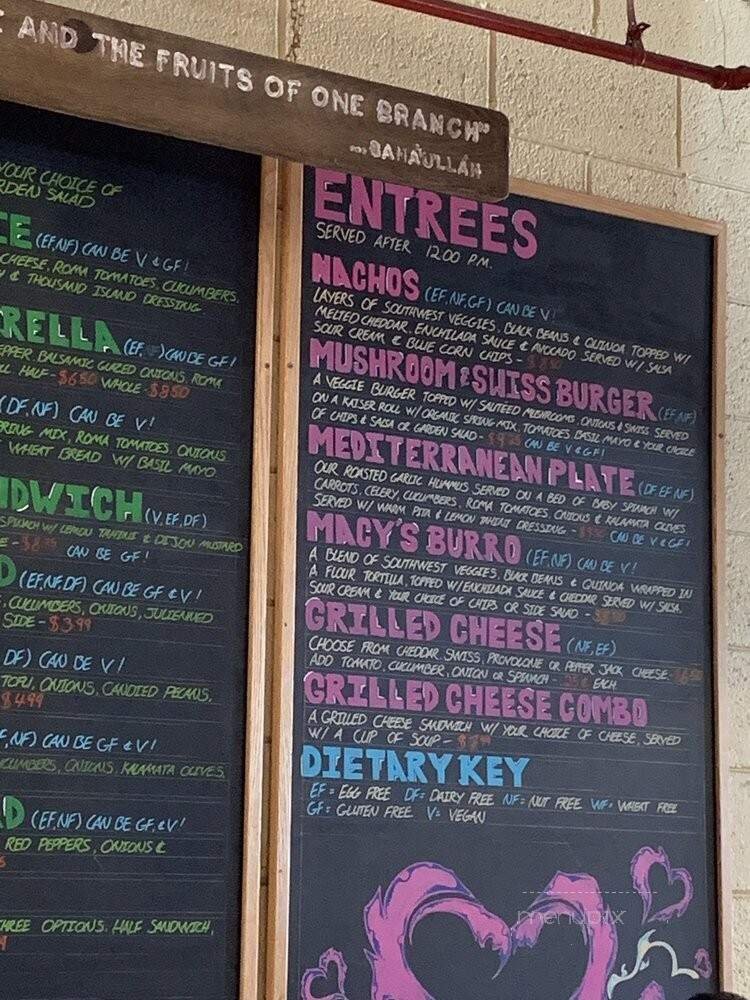 AND THE FRUITS OF ONE BRANCH"
...BAHÁ'U'LLÁH
YOUR CHOICE OF
RDEN SALAD
EE (EF,NF) CAN BE V & GF!
CHEESE, ROMA TOMATOES, CUCUMBERS,
& THOUSAND ISLAND DRESSING
RELLA (EF, ) CAN BE GF!
EPPER, BALSAMIC CURED ONIONS, ROMA
HALF - $6.50 WHOLE - $8.50
(DF,NF) CAN BE V!
PRING MIX, ROMA TOMATOES, ONIONS
WHEAT BREAD W/ BASIL MAYO
NDWICH (V,EF,DF)
SPINACH W/ LEMON TAHINI & DIJON MUSTARD
CAN BE GF!
D (EF,NF,DF) CAN BE GF & V!
, CUCUMBERS, ONIONS, JULIENNED
SIDE - $3.99
DF) CAN BE V!
TOFU, ONIONS, CANDIED PECANS,
$4.99
F,NF) CAN BE GF & V!
CUMBERS, ONIONS, KALAMATA OLIVES,
AD (EF,NF) CAN BE GF & V!
RED PEPPERS, ONIONS &
THREE OPTIONS: HALF SANDWICH,
ENTREES
SERVED AFTER 12:00 P.M.
NACHOS (EF,NF,GF) CAN BE V!
LAYERS OF SOUTHWEST VEGGIES, BLACK BEANS & QUINOA TOPPED W/
MELTED CHEDDAR, ENCHILADA SAUCE & AVOCADO SERVED W/ SALSA
SOUR CREAM & BLUE CORN CHIPS -
MUSHROOM & SWISS BURGER (EF,NF)
A VEGGIE BURGER TOPPED W/ SAUTEED MUSHROOMS, ONIONS & SWISS SERVED
ON A KAISER ROLL W/ ORGANIC SPRING MIX, TOMATOES, BASIL MAYO & YOUR CHOICE
OF CHIPS & SALSA OR GARDEN SALAD - CAN BE V & GF!
MEDITERRANEAN PLATE (DF,EF,NF)
OUR ROASTED GARLIC HUMMUS SERVED ON A BED OF BABY SPINACH W/
CARROTS, CELERY, CUCUMBERS, ROMA TOMATOES, ONIONS & KALAMATA OLIVES
SERVED W/ WARM PITA & LEMON TAHINI DRESSING - CAN BE V & GF!
MACY'S BURRO (EF,NF) CAN BE V!
A BLEND OF SOUTHWEST VEGGIES, BLACK BEANS & QUINOA WRAPPED IN
A FLOUR TORTILLA, TOPPED W/ ENCHILADA SAUCE & CHEDDAR SERVED W/ SALSA,
SOUR CREAM & YOUR CHOICE OF CHIPS OR SIDE SALAD -
GRILLED CHEESE (NF,EF)
CHOOSE FROM CHEDDAR, SWISS, PROVOLONE OR PEPPER JACK CHEESE
ADD TOMATO, CUCUMBER, ONION OR SPINACH - EACH
GRILLED CHEESE COMBO
A GRILLED CHEESE SANDWICH W/ YOUR CHOICE OF CHEESE, SERVED
W/ A CUP OF SOUP -
DIETARY KEY
EF = EGG FREE DF = DAIRY FREE NF = NUT FREE WF = WHEAT FREE
GF = GLUTEN FREE V = VEGAN
menupix